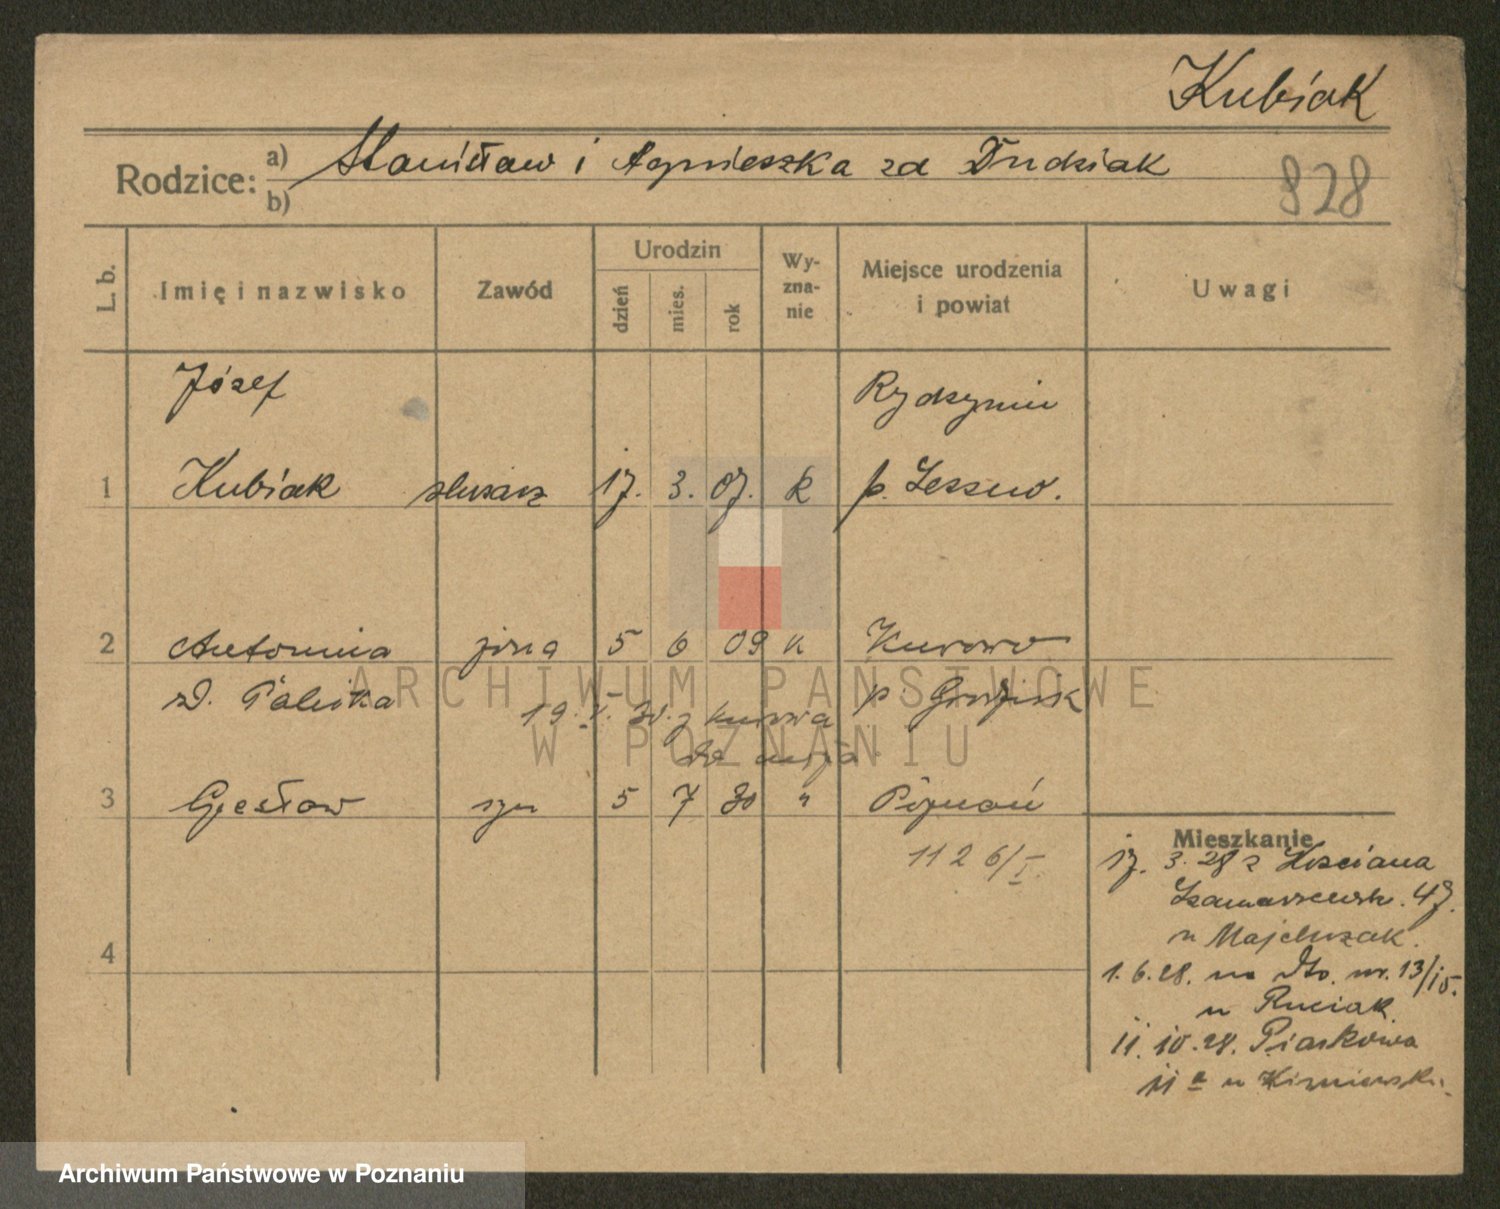 Kubiak
Rodzice: a) Stanisław i Agnieszka zd Dudziak
b)
828
L. b.
Imię i nazwisko
Zawód
Urodzin
dzień
mies.
rok
Wy-
zna-
nie
Miejsce urodzenia
i powiat
Uwagi
Józef
Rydzynie
1 Kubiak ślusarz 17. 3. 07. k p. Leszno.
2 Antonina żona 5 6 09 k Kurowo
zd. p. Grodzisk
19. 30. z
do męża
3 Czesław syn 5 7 30 " Poznań
Mieszkanie
1126/I.
17. 3. 28 z Kościana
Szamarzewsk. 47.
u Majchrzak.
4
1. 6. 28. na Dto. nr. 13/15.
u Ruciak
11. 10. 28. Piaskowa
11 a u
ARCHIWUM PAŃSTWOWE
W POZNANIU
Archiwum Państwowe w Poznaniu